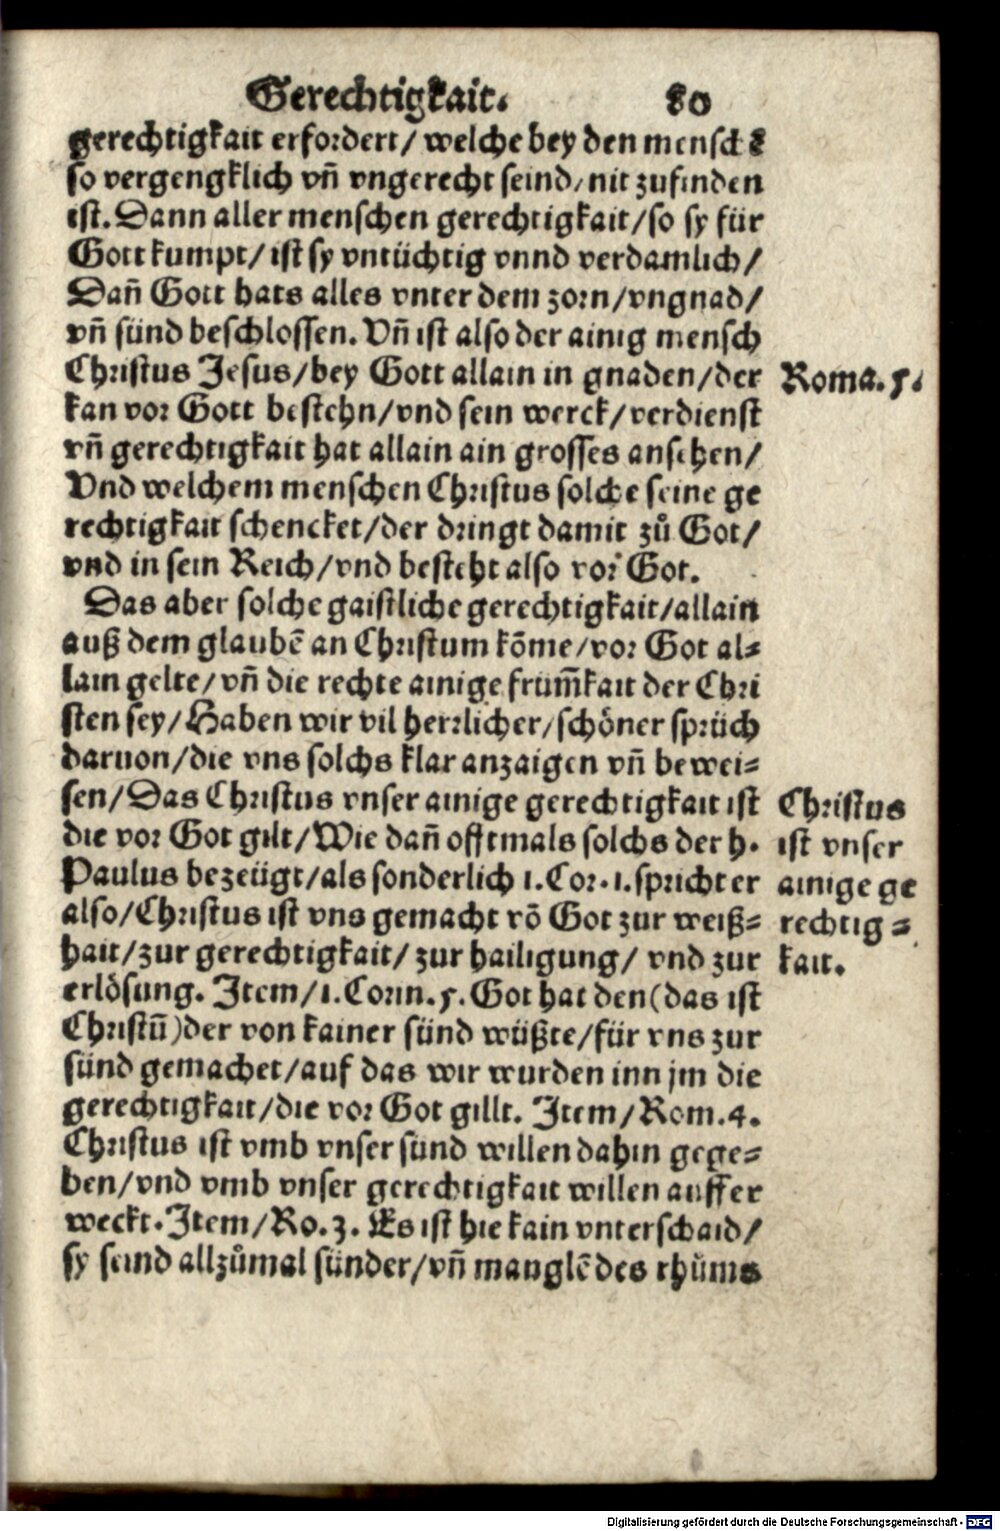 Gerechtigkait. 80
gerechtigkait erfordert/ welche bey den mensch̄
so vergengklich vn̄ vngerecht seind/ nit zufinden
ist. Dann aller menschen gerechtigkait/ so sy für
Gott kumpt/ ist sy vntüchtig vnnd verdamlich/
Dan̄ Gott hats alles vnter dem zorn/ vngnad/
vn̄ sünd beschlossen. Vn̄ ist also der ainig mensch
Christus Jesus/ bey Gott allain in gnaden/ der
Roma. 5.
kan vor Gott bestehn/ vnd sein werck/ verdienst
vn̄ gerechtigkait hat allain ain grosses ansehen/
Vnd welchem menschen Christus solche seine ge
rechtigkait schencket/ der dringt damit zů Got/
vnd in sein Reich/ vnd besteht also vor Got.
Das aber solche gaistliche gerechtigkait/ allain
auß dem glaubē an Christum kōme/ vor Got al⸗
lain gelte/ vn̄ die rechte ainige frum̄kait der Chri
sten sey/ Haben wir vil herrlicher/ schöner sprüch
daruon/ die vns solchs klar anzaigen vn̄ bewei⸗
sen/ Das Christus vnser ainige gerechtigkait ist
die vor Got gilt/ Wie dan̄ offtmals solchs der h.
Paulus bezeügt/ als sonderlich 1. Cor. 1. spricht er
also/ Christus ist vns gemacht vō Got zur weiß⸗
hait/ zur gerechtigkait/ zur hailigung/ vnd zur
Christus
ist vnser
ainige ge
rechtig⸗
kait.
erlösung. Item/ 1. Corin. 5. Got hat den (das ist
Christū) der von kainer sünd wüßte/ für vns zur
sünd gemachet/ auf das wir wurden inn jm die
gerechtigkait/ die vor Got gillt. Item/ Rom. 4.
Christus ist vmb vnser sünd willen dahin gege⸗
ben/ vnd vmb vnser gerechtigkait willen auffer
weckt. Item/ Ro. 3. Es ist hie kain vnterschaid/
sy seind allzůmal sünder/ vn̄ manglē des rhůms
Digitalisierung gefördert durch die Deutsche Forschungsgemeinschaft - DFG